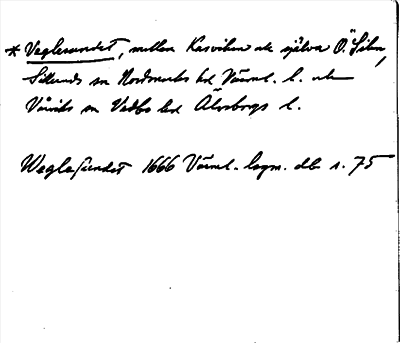 * Veglesundet, mellan Kasviken ok själva Ö. Silen,
Sillerud sn Nordmarks hd Värml. l. ok
Vårviks sn Vedbo hd Älvsborgs l.
Weglesundet 1666 Värml. legm. db s. 75